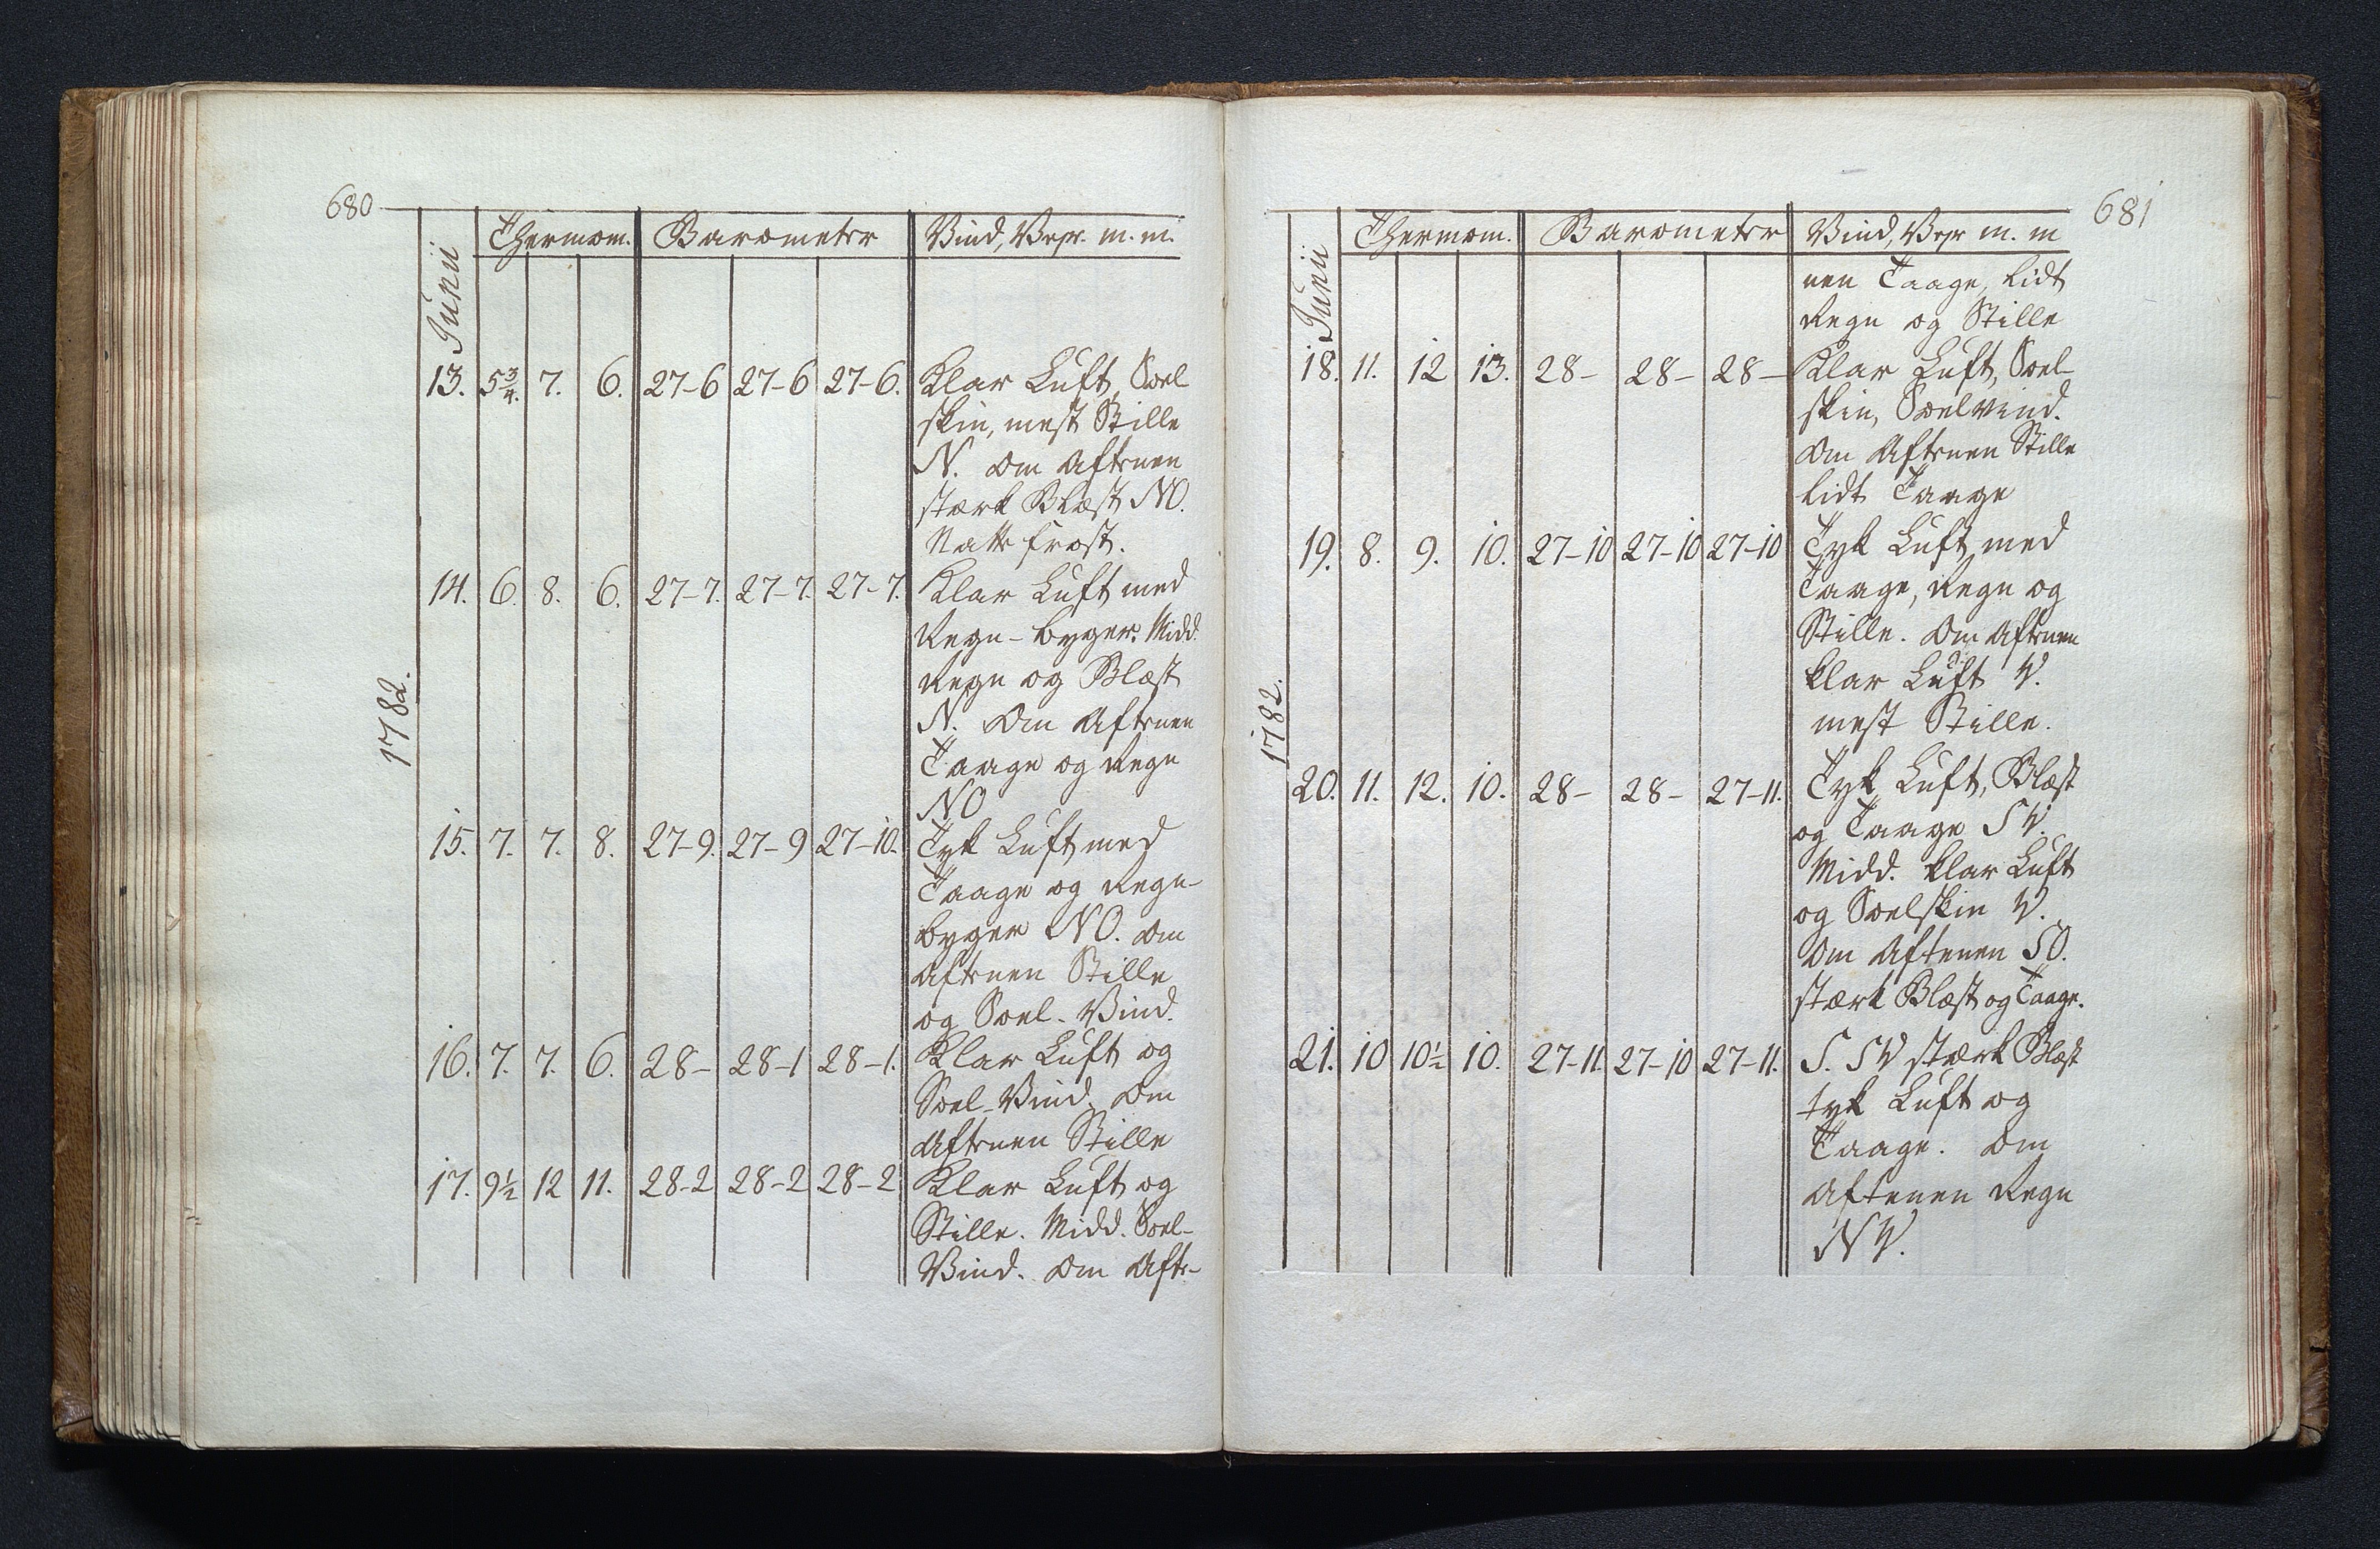 680
1782.
Junii
Thermom. Barometer Vind, Vejr. m. m.
13. 5¾. 7. 6. 27-6 27-6 27-6. Klar Luft, Soel
skin, mest Stille
N. Om Aftenen
stærk Blæst NO.
Natte frost.
14. 6. 8. 6. 27-7. 27-7. 27-7. Klar Luft med
Regn-byger. Midd.
Regn og Blæst
N. Om Aftenen
Taage og Regn
NO
15. 7. 7. 8. 27-9. 27-9 27-10. Tyk Luft med
Taage og Regn-
byger NO. Om
Aftenen Stille
og Soel-Vind.
16. 7. 7. 6. 28- 28-1 28-1. Klar Luft og
Soel-Vind. Om
Aftenen Stille
17. 9½ 12 11. 28-2 28-2 28-2 Klar Luft og
Stille. Midd. Soel-
Vind. Om Afte-
681
1782.
Junii
Thermom. Barometer Vind, Vejr m. m
nen Taage, lidt
Regn og Stille
18. 11. 12 13. 28- 28- 28- Klar Luft, Soel-
skin, Soelvind.
Om Aftenen Stille
lidt Taage
19. 8. 9. 10. 27-10 27-10 27-10 Tyk Luft med
Taage, Regn og
Stille. Om Aftenen
klar Luft V.
mest Stille.
20. 11. 12. 10. 28- 28- 27-11. Tyk Luft, Blæst
og Taage SV.
Midd. klar Luft
og Soelskin V.
Om Aftenen SO.
stærk Blæst og Taage.
21. 10 10½ 10. 27-11. 27-10 27-11. S. SV stærk Blæst
tyk Luft og
Taage. Om
Aftenen Regn
NV.